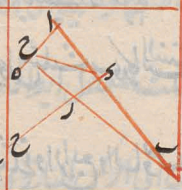 ا
ح
ه
د
ر
ح
ب